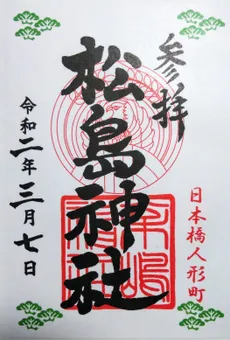 参拝
松島神社
日本橋人形町
令和二年三月七日